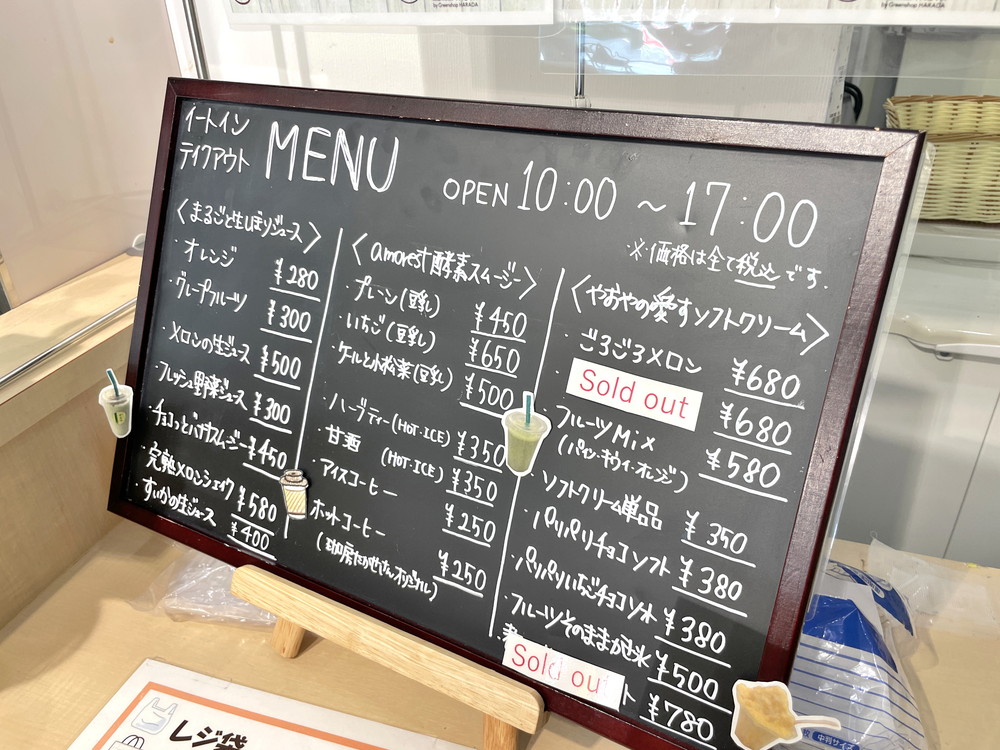 by Greenshop HARADA
by Greenshop HARADA
イートイン
テイクアウト
MENU
OPEN 10:00 ~ 17:00
※価格は全て税込です.
〈まるごと生しぼりジュース〉
・オレンジ ¥280
・グレープフルーツ ¥300
・メロンの生ジュース ¥500
・フレッシュ野菜ジュース ¥300
・チョコっとバナナスムージー ¥450
・完熟メロンシェイク ¥580
・すいかの生ジュース ¥400
〈amorest酵素スムージー〉
・プレーン(豆乳) ¥450
・いちご(豆乳) ¥650
・ケールと小松菜(豆乳) ¥500
・ハーブティー(HOT・ICE) ¥350
・甘酒 (HOT・ICE) ¥350
・アイスコーヒー ¥250
・ホットコーヒー
(珈房たかせさんオリジナル) ¥250
〈やおやの愛すソフトクリーム〉
・ごろごろメロン ¥680
・Sold out ¥680
・フルーツMix ¥580
(パイン・キウイ・オレンジ)
・ソフトクリーム単品 ¥350
・パリパリチョコソフト ¥380
・パリパリいちごチョコソフト ¥380
・フルーツそのままかき氷 ¥500
Sold out ト ¥780
レジ袋
中判サイズ